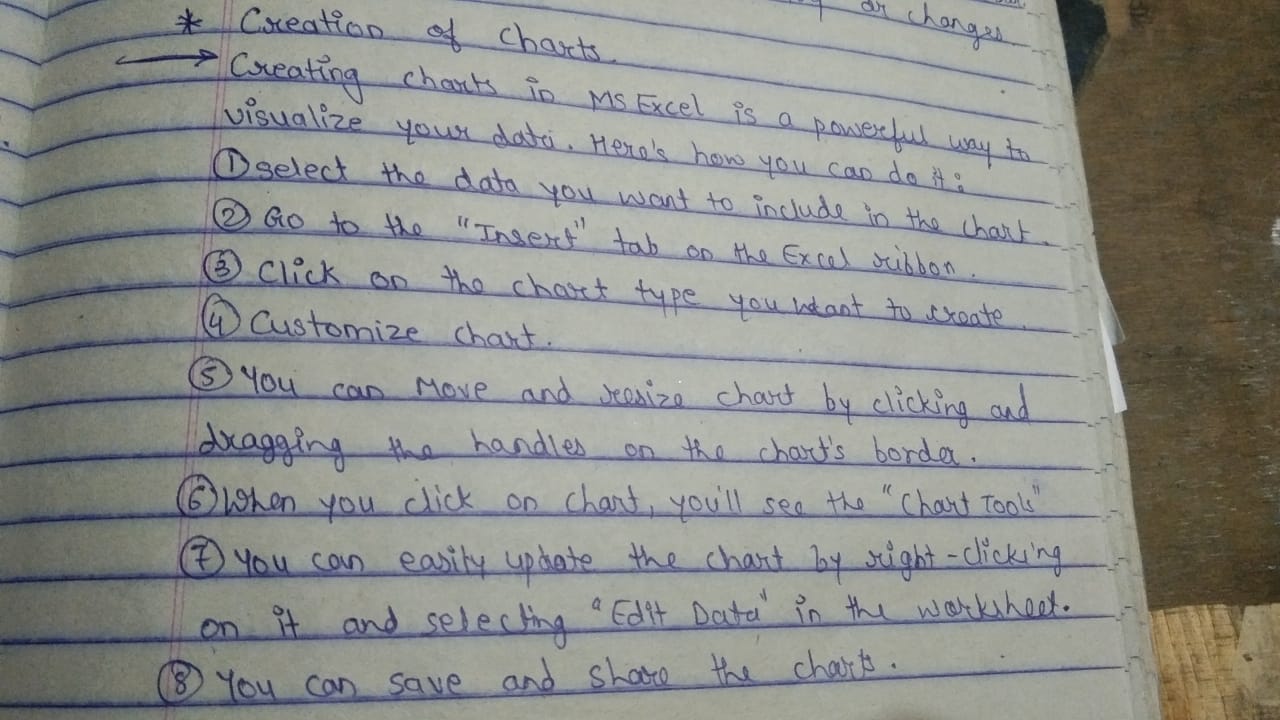 or changes
* Creation of Charts.
→ Creating charts in MS Excel is a powerful way to
visualize your data. Here's how you can do it:
① select the data you want to include in the chart.
② Go to the "Insert" tab on the Excel ribbon.
③ Click on the chart type you want to create.
④ Customize chart.
⑤ You can Move and resize chart by clicking and
dragging the handles on the chart's border.
⑥ When you click on chart, you'll see the "Chart Tools"
⑦ You can easily update the chart by right-clicking
on it and selecting "Edit Data" in the worksheet.
⑧ You can save and share the charts.